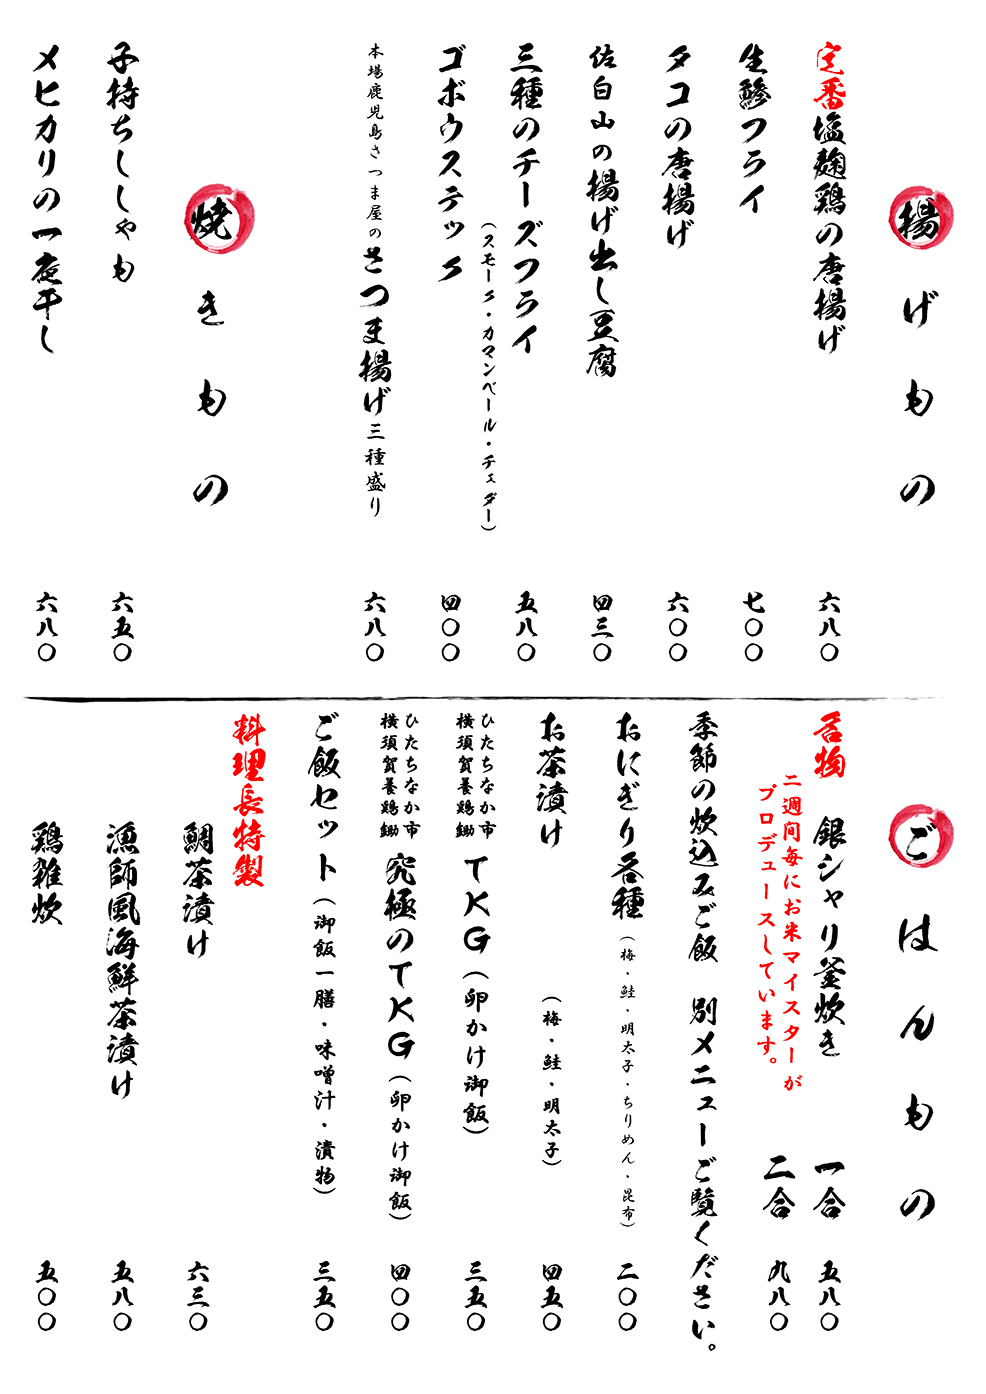 揚げもの
定番塩麹鶏の唐揚げ 六八〇
生鯵フライ 七〇〇
タコの唐揚げ 六〇〇
佐白山の揚げ出し豆腐 四三〇
三種のチーズフライ 五八〇
(スモーク・カマンベール・チェダー)
ゴボウスティック 四〇〇
本場鹿児島さつま屋のさつま揚げ三種盛り 六八〇
焼きもの
子持ちししゃも 六五〇
メヒカリの一夜干し 六八〇
ごはんもの
名物 銀シャリ釜炊き 一合 五八〇
二合 九八〇
二週間毎にお米マイスターが
プロデュースしています。
季節の炊込みご飯 別メニューご覧ください。
おにぎり各種(梅・鮭・明太子・ちりめん・昆布) 二〇〇
お茶漬け (梅・鮭・明太子) 四五〇
ひたちなか市
横須賀養鶏鋤
TKG(卵かけ御飯) 三五〇
ひたちなか市
横須賀養鶏鋤
究極のTKG(卵かけ御飯) 四〇〇
ご飯セット(御飯一膳・味噌汁・漬物) 三五〇
料理長特製
鯛茶漬け 六三〇
漁師風海鮮茶漬け 五八〇
鶏雑炊 五〇〇